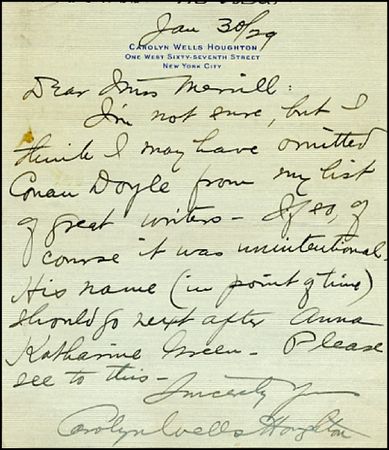 Jan 30/29
CAROLYN WELLS HOUGHTON
ONE WEST SIXTY-SEVENTH STREET
NEW YORK CITY
Dear Miss Merrill:
I'm not sure, but I
think I may have omitted
Conan Doyle from my list
of great writers - If so, of
course it was unintentional.
His name (in point of time)
should go next after Anna
Katharine Green - Please
see to this -
Sincerely Yours
Carolyn Wells Houghton